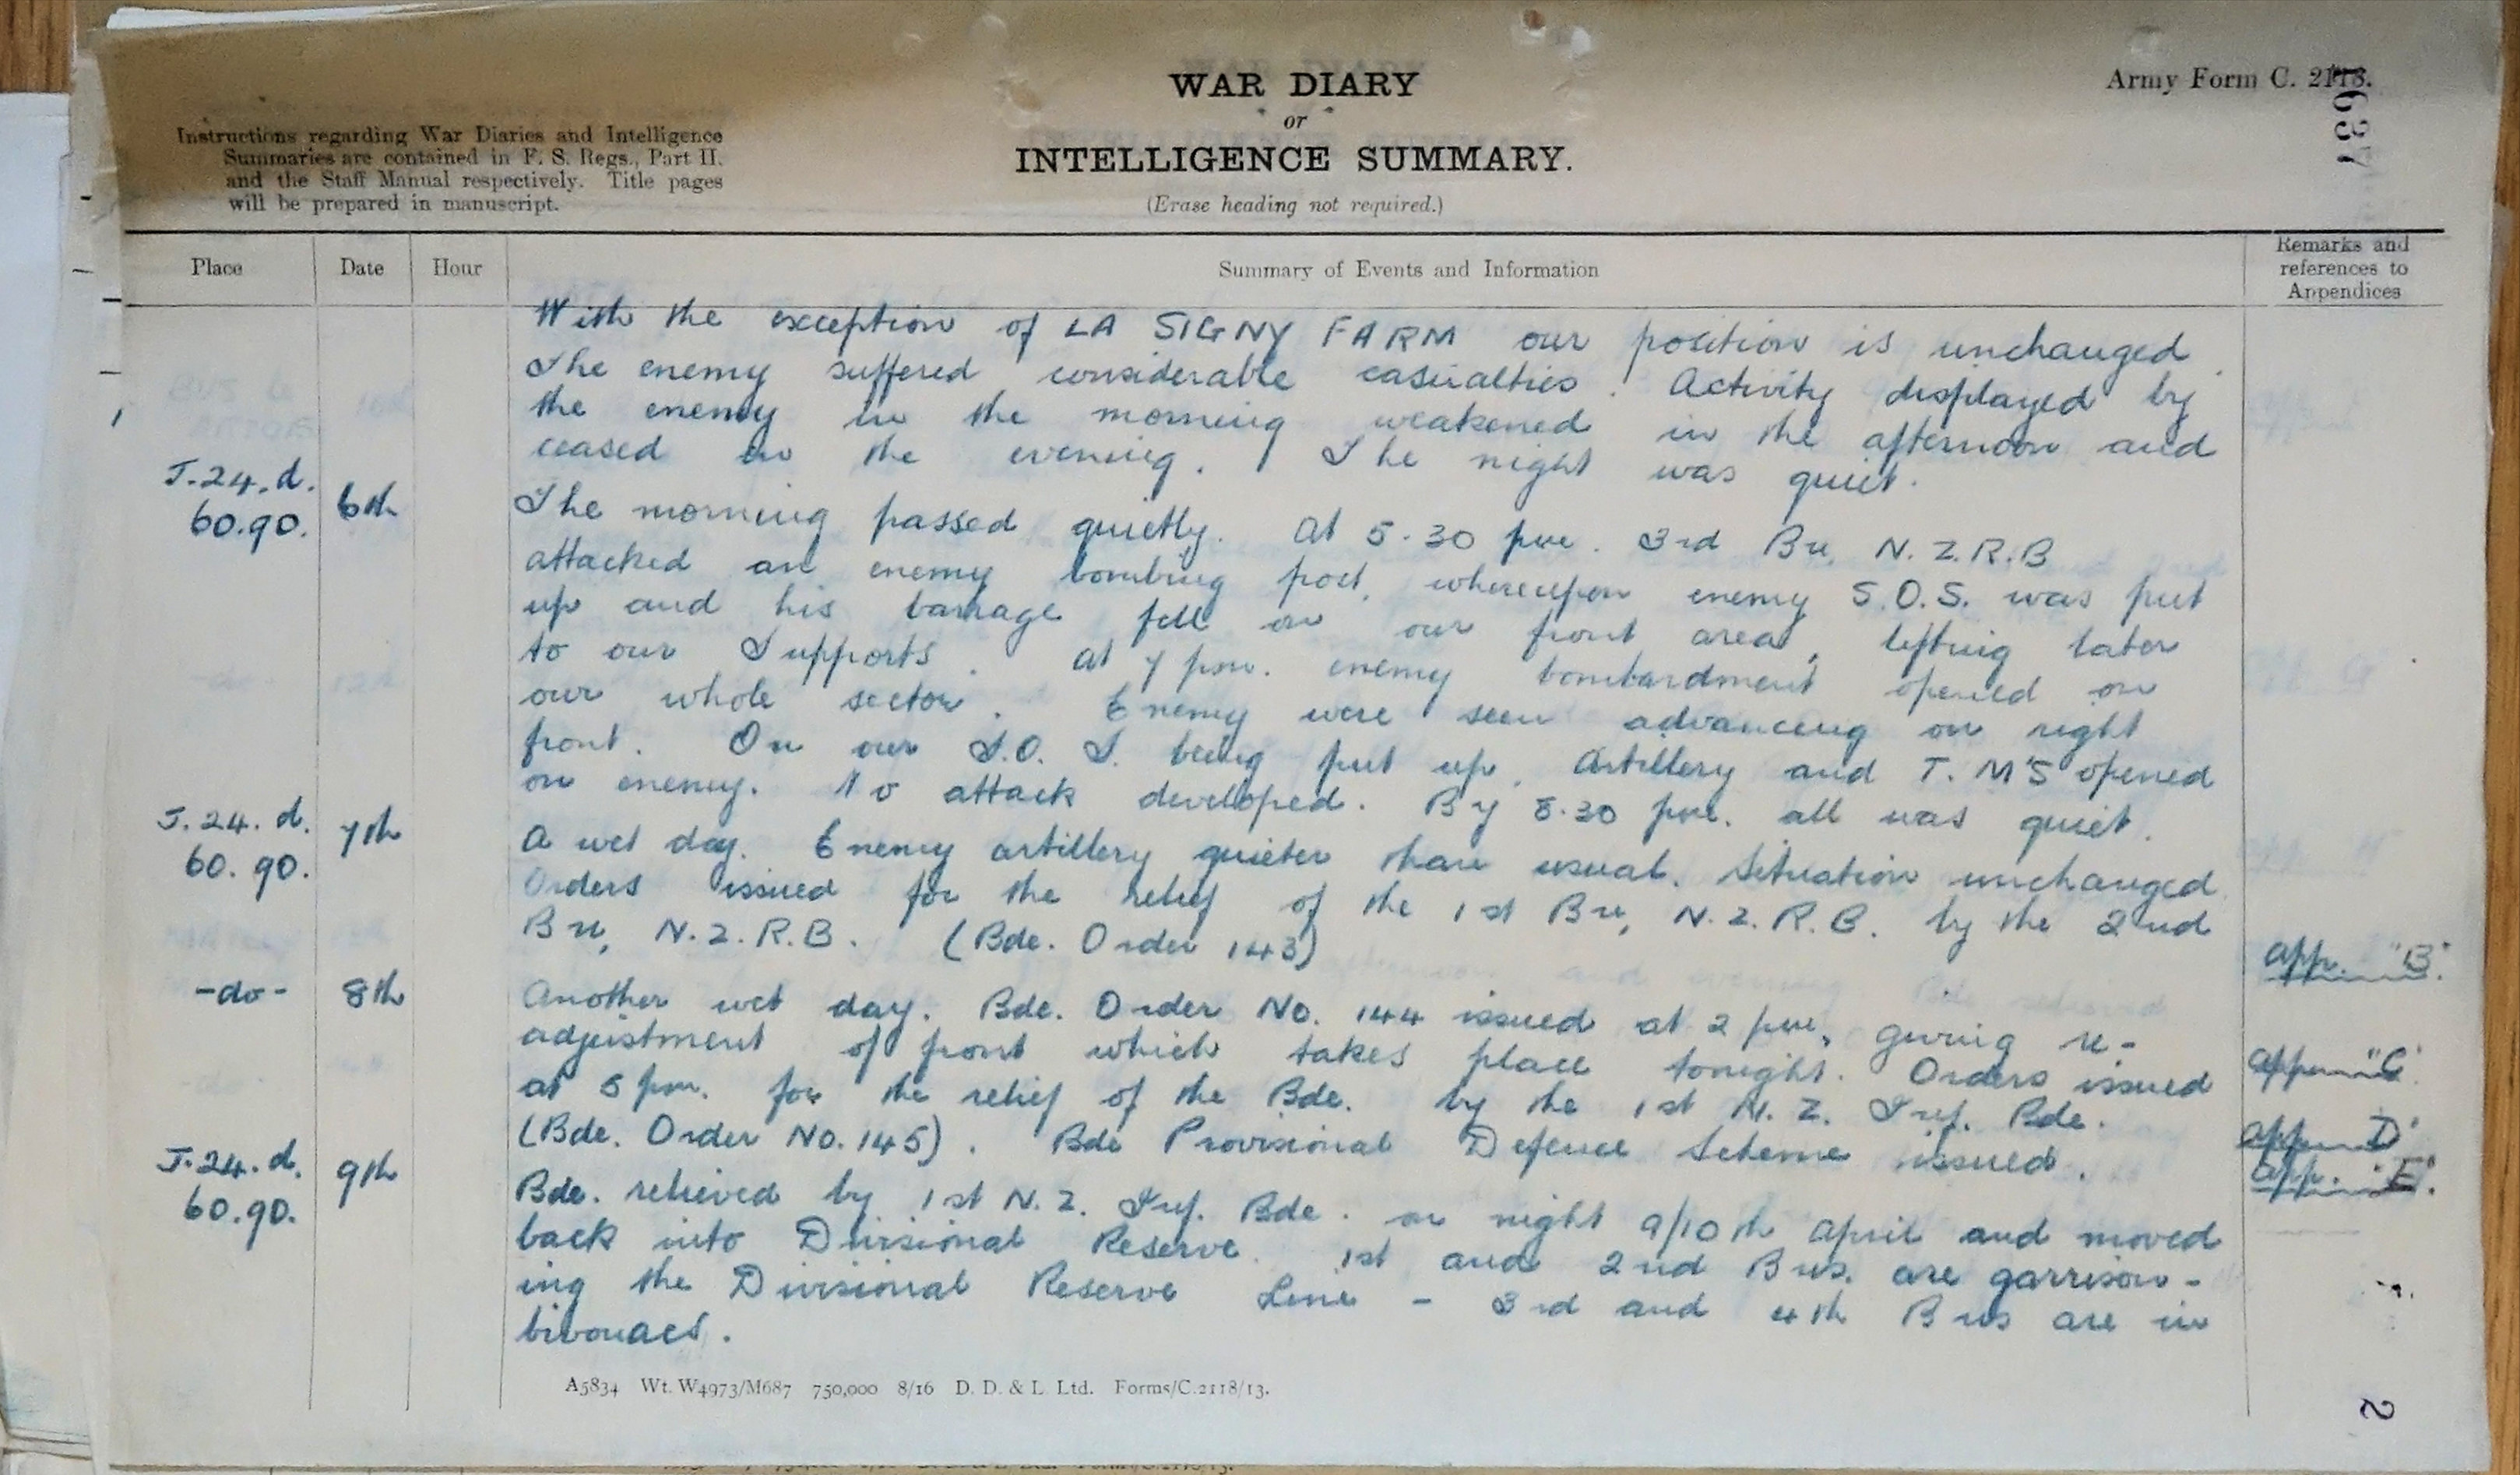 WAR DIARY
or
INTELLIGENCE SUMMARY.
(Erase heading not required.)
Army Form C. 2118.
1637
Instructions regarding War Diaries and Intelligence
Summaries are contained in F. S. Regs., Part II.
and the Staff Manual respectively. Title pages
will be prepared in manuscript.
Place Date Hour Summary of Events and Information Remarks and references to Appendices
With the exception of LA SIGNY FARM our position is unchanged.
The enemy suffered considerable casualties. Activity displayed by
the enemy in the morning weakened in the afternoon and
ceased in the evening. The night was quiet.
J.24.d. 60.90. 6th The morning passed quietly. At 5.30 pm. 3rd Bn. N.Z.R.B
attacked an enemy bombing post, whereupon enemy S.O.S. was put
up and his barrage fell on our front area, lifting later
to our Supports. At 7 pm. enemy bombardment opened on
our whole sector. Enemy were seen advancing on right
front. On our S.O.S. being put up, Artillery and T.M'S opened
on enemy. No attack developed. By 8.30 pm. all was quiet.
J.24.d. 60.90. 7th A wet day. Enemy artillery quieter than usual. Situation unchanged.
Orders issued for the relief of the 1st Bn, N.Z.R.B. by the 2nd
Bn, N.Z.R.B. (Bde. Order 143) App. "B".
-do- 8th Another wet day. Bde. Order No. 144 issued at 2 pm, giving re-
adjustment of front which takes place tonight. Orders issued App "C"
at 5 pm. for the relief of the Bde. by the 1st N.Z. Inf. Bde.
(Bde. Order No. 145). Bde Provisional Defence Scheme issued. App "D"
App. "E".
J.24.d. 60.90. 9th Bde. relieved by 1st N.Z. Inf. Bde. on night 9/10th April and moved
back into Divisional Reserve. 1st and 2nd Bns. are garrison-
ing the Divisional Reserve Line - 3rd and 4th Bns are in
bivouacs.
A5834 Wt. W4973/M687 750,000 8/16 D. D. & L. Ltd. Forms/C.2118/13.
2